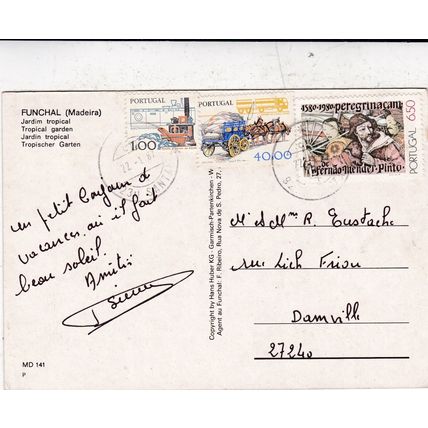 FUNCHAL (Madeira)
Jardim tropical
Tropical garden
Jardin tropical
Tropischer Garten
PORTUGAL
1.00
PORTUGAL
40.00
1580-1980 peregrinacam
de Fernão Mendes Pinto
PORTUGAL 6.50
22.-1.8
un petit bonjour de
vacances où il fait
beau soleil.
Amitiés
M. et Mme R. Eustache
Damville
27240
Copyright by Hans Huber KG - Garmisch-Partenkirchen - W
Agent au Funchal: F. Ribeiro, Rua Nova de S. Pedro, 27,
MD 141
P